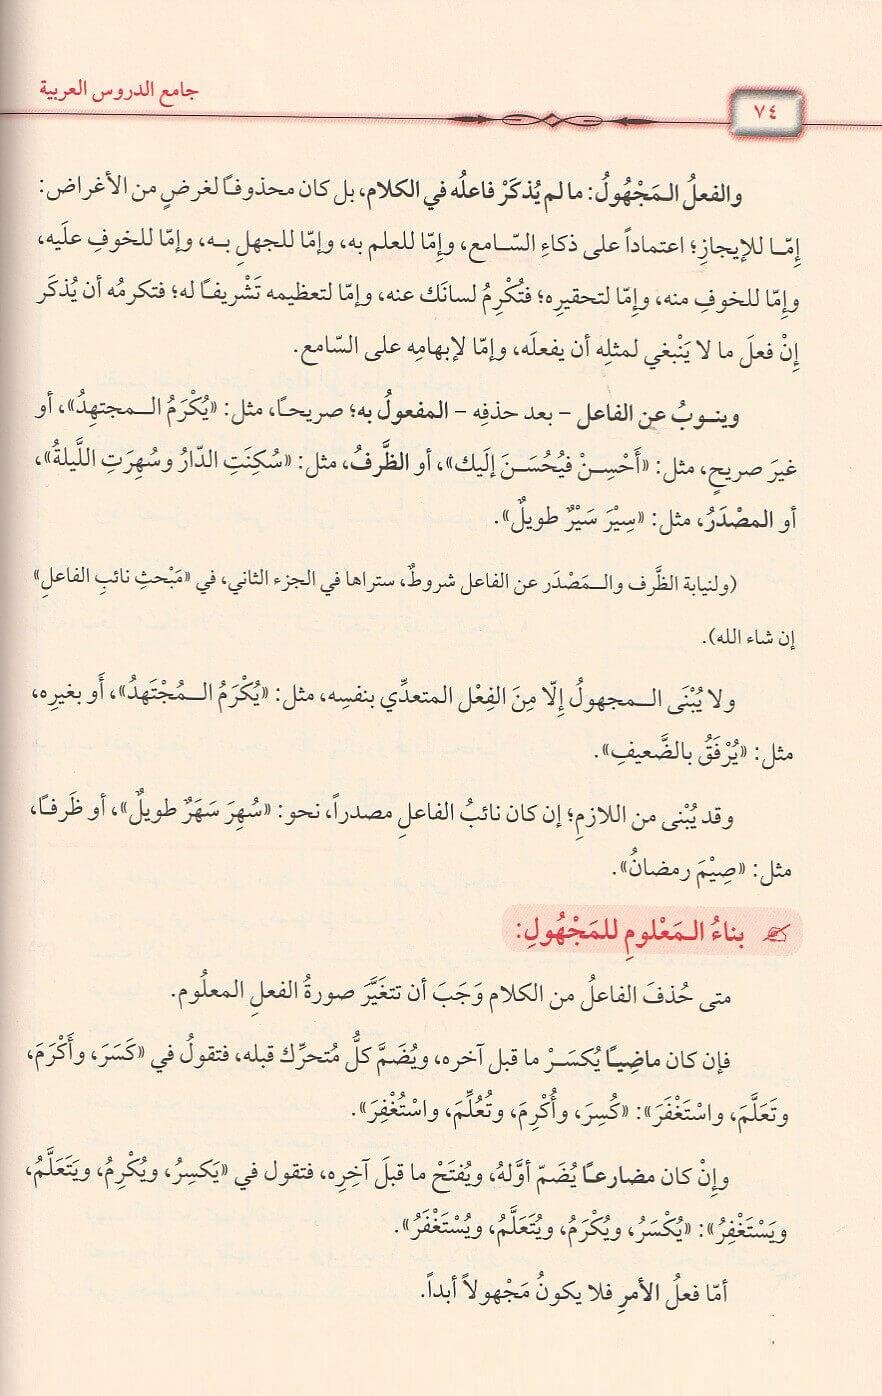 جامع الدروس العربية
٧٤
والفعلُ المَجْهُولُ: ما لم يُذكَرْ فاعلُه في الكلام، بل كان محذوفًا لغرضٍ من الأغراض:
إِمَّا للإيجازِ؛ اعتماداً على ذكاءِ السّامع، وإِمَّا للعلم به، وإمّا للجهلِ به، وإمّا للخوفِ عليَه،
وإمّا للخوفِ منه، وإِمَّا لتحقيرِه؛ فتُكْرِمُ لسانَك عنه، وإمّا لتعظيمه تَشْريفًا له؛ فتكرمُه أن يُذكَر
إِنْ فعلَ ما لا يَنْبغي لمثلِه أن يفعلَه، وإمّا لإبهامِه على السّامع.
وينوبُ عن الفاعل – بعد حذفِه – المفعولُ به؛ صريحًا، مثل: «يُكْرَمُ المجتهِدُ»، أو
غيرَ صريحٍ، مثل: «أَحْسِنْ فيُحْسَنَ إلَيك»، أو الظَّرفُ، مثل: «سُكِنَتِ الدّارُ وسُهِرَتِ اللَّيلةُ»،
أو المصْدَرُ، مثل: «سِيْرَ سَيْرٌ طويلٌ».
(ولنيابة الظَّرف والمَصْدَر عن الفاعل شروطٌ، ستراها في الجزء الثاني، في «مَبْحثِ نائبِ الفاعلِ»
إن شاء الله).
ولا يُبْنَى المجهولُ إلّا مِنَ الفِعْل المتعدِّي بنفسِه، مثل: «يُكْرَمُ المُجْتَهدُ»، أَو بغيرِه،
مثل: «يُرْفَقُ بالضَّعيفِ».
وقد يُبْنى من اللازمِ؛ إن كان نائبُ الفاعلِ مصدراً، نحو: «سُهِرَ سَهَرٌ طويلٌ»، أو ظَرفًا،
مثل: «صِيْمَ رمضانُ».
بناءُ المَعْلومِ للمَجْهُولِ:
متى حُذفَ الفاعلُ من الكلام وَجَبَ أن تتغَيَّرَ صورةُ الفعلِ المعلُوم.
فإن كان ماضِيًا يُكسَرْ ما قبل آخره، ويُضَمَّ كلُّ مُتحرِّك قبله، فتقولُ في «كَسَرَ، وأَكْرَمَ،
وتَعَلَّمَ، واسْتَغْفَرَ»: «كُسِرَ، وأُكْرِمَ، وتُعُلِّمَ، واسْتُغْفِرَ».
وإِنْ كان مضارعًا يُضَمّ أوَّلهُ، ويُفتَحْ ما قبلَ آخِرِه، فتقول في «يَكسِرُ، ويُكْرِمُ، ويَتَعَلَّمُ،
ويَسْتَغْفِرُ»: «يُكْسَرُ، ويُكْرَمُ، ويُتَعَلَّمُ، ويُسْتَغْفَرُ».
أمّا فعلُ الأمرِ فلا يكونُ مَجْهولاً أبداً.